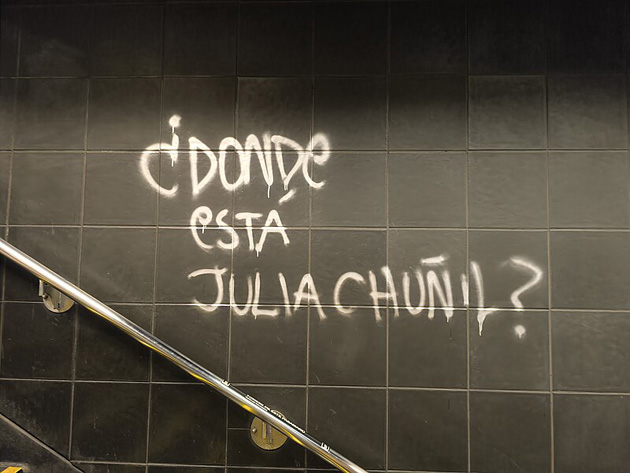 ¿DONDE
ESTÁ
JULIA CHUÑIL?